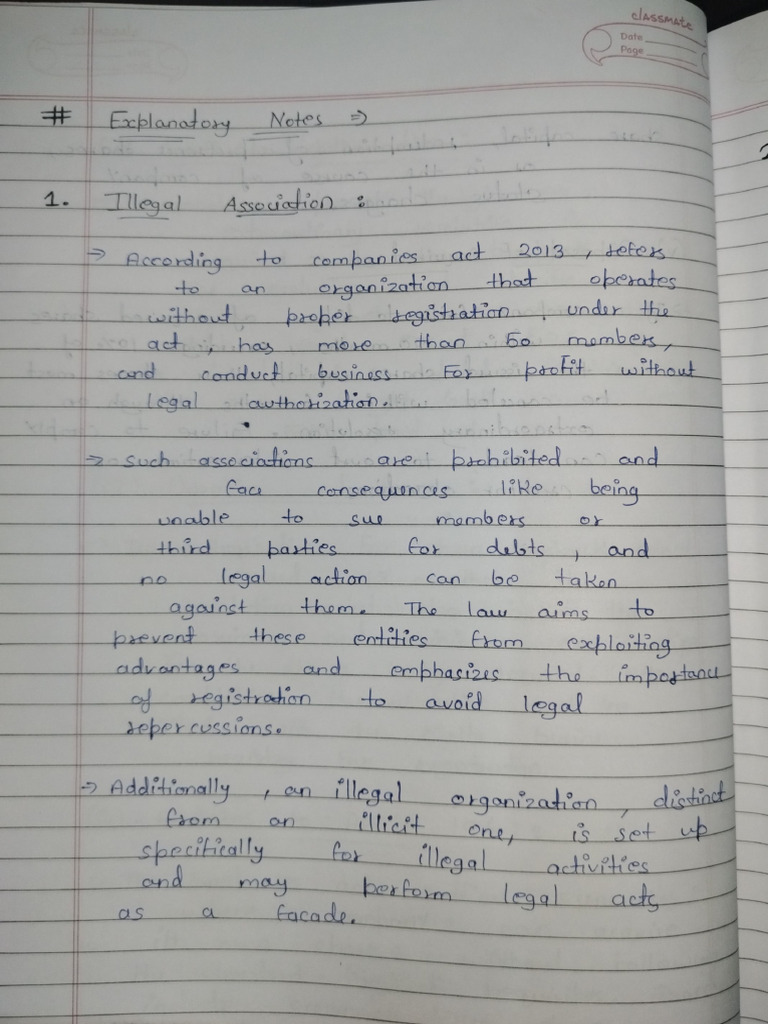 classmate
Date
Page
# Explanatory Notes ⇒
1. Illegal Association :
→ According to companies act 2013 , refers
to an organization that operates
without proper registration under the
act , has more than 50 members,
and conduct business For profit without
legal authorization.
→ Such associations are prohibited and
face consequences like being
unable to sue members or
third parties for debts , and
no legal action can be taken
against them. The law aims to
prevent these entities from exploiting
advantages and emphasizes the importance
of registration to avoid legal
repercussions.
→ Additionally , an illegal organization , distinct
from an illicit one, is set up
specifically for illegal activities
and may perform legal acts
as a facade.